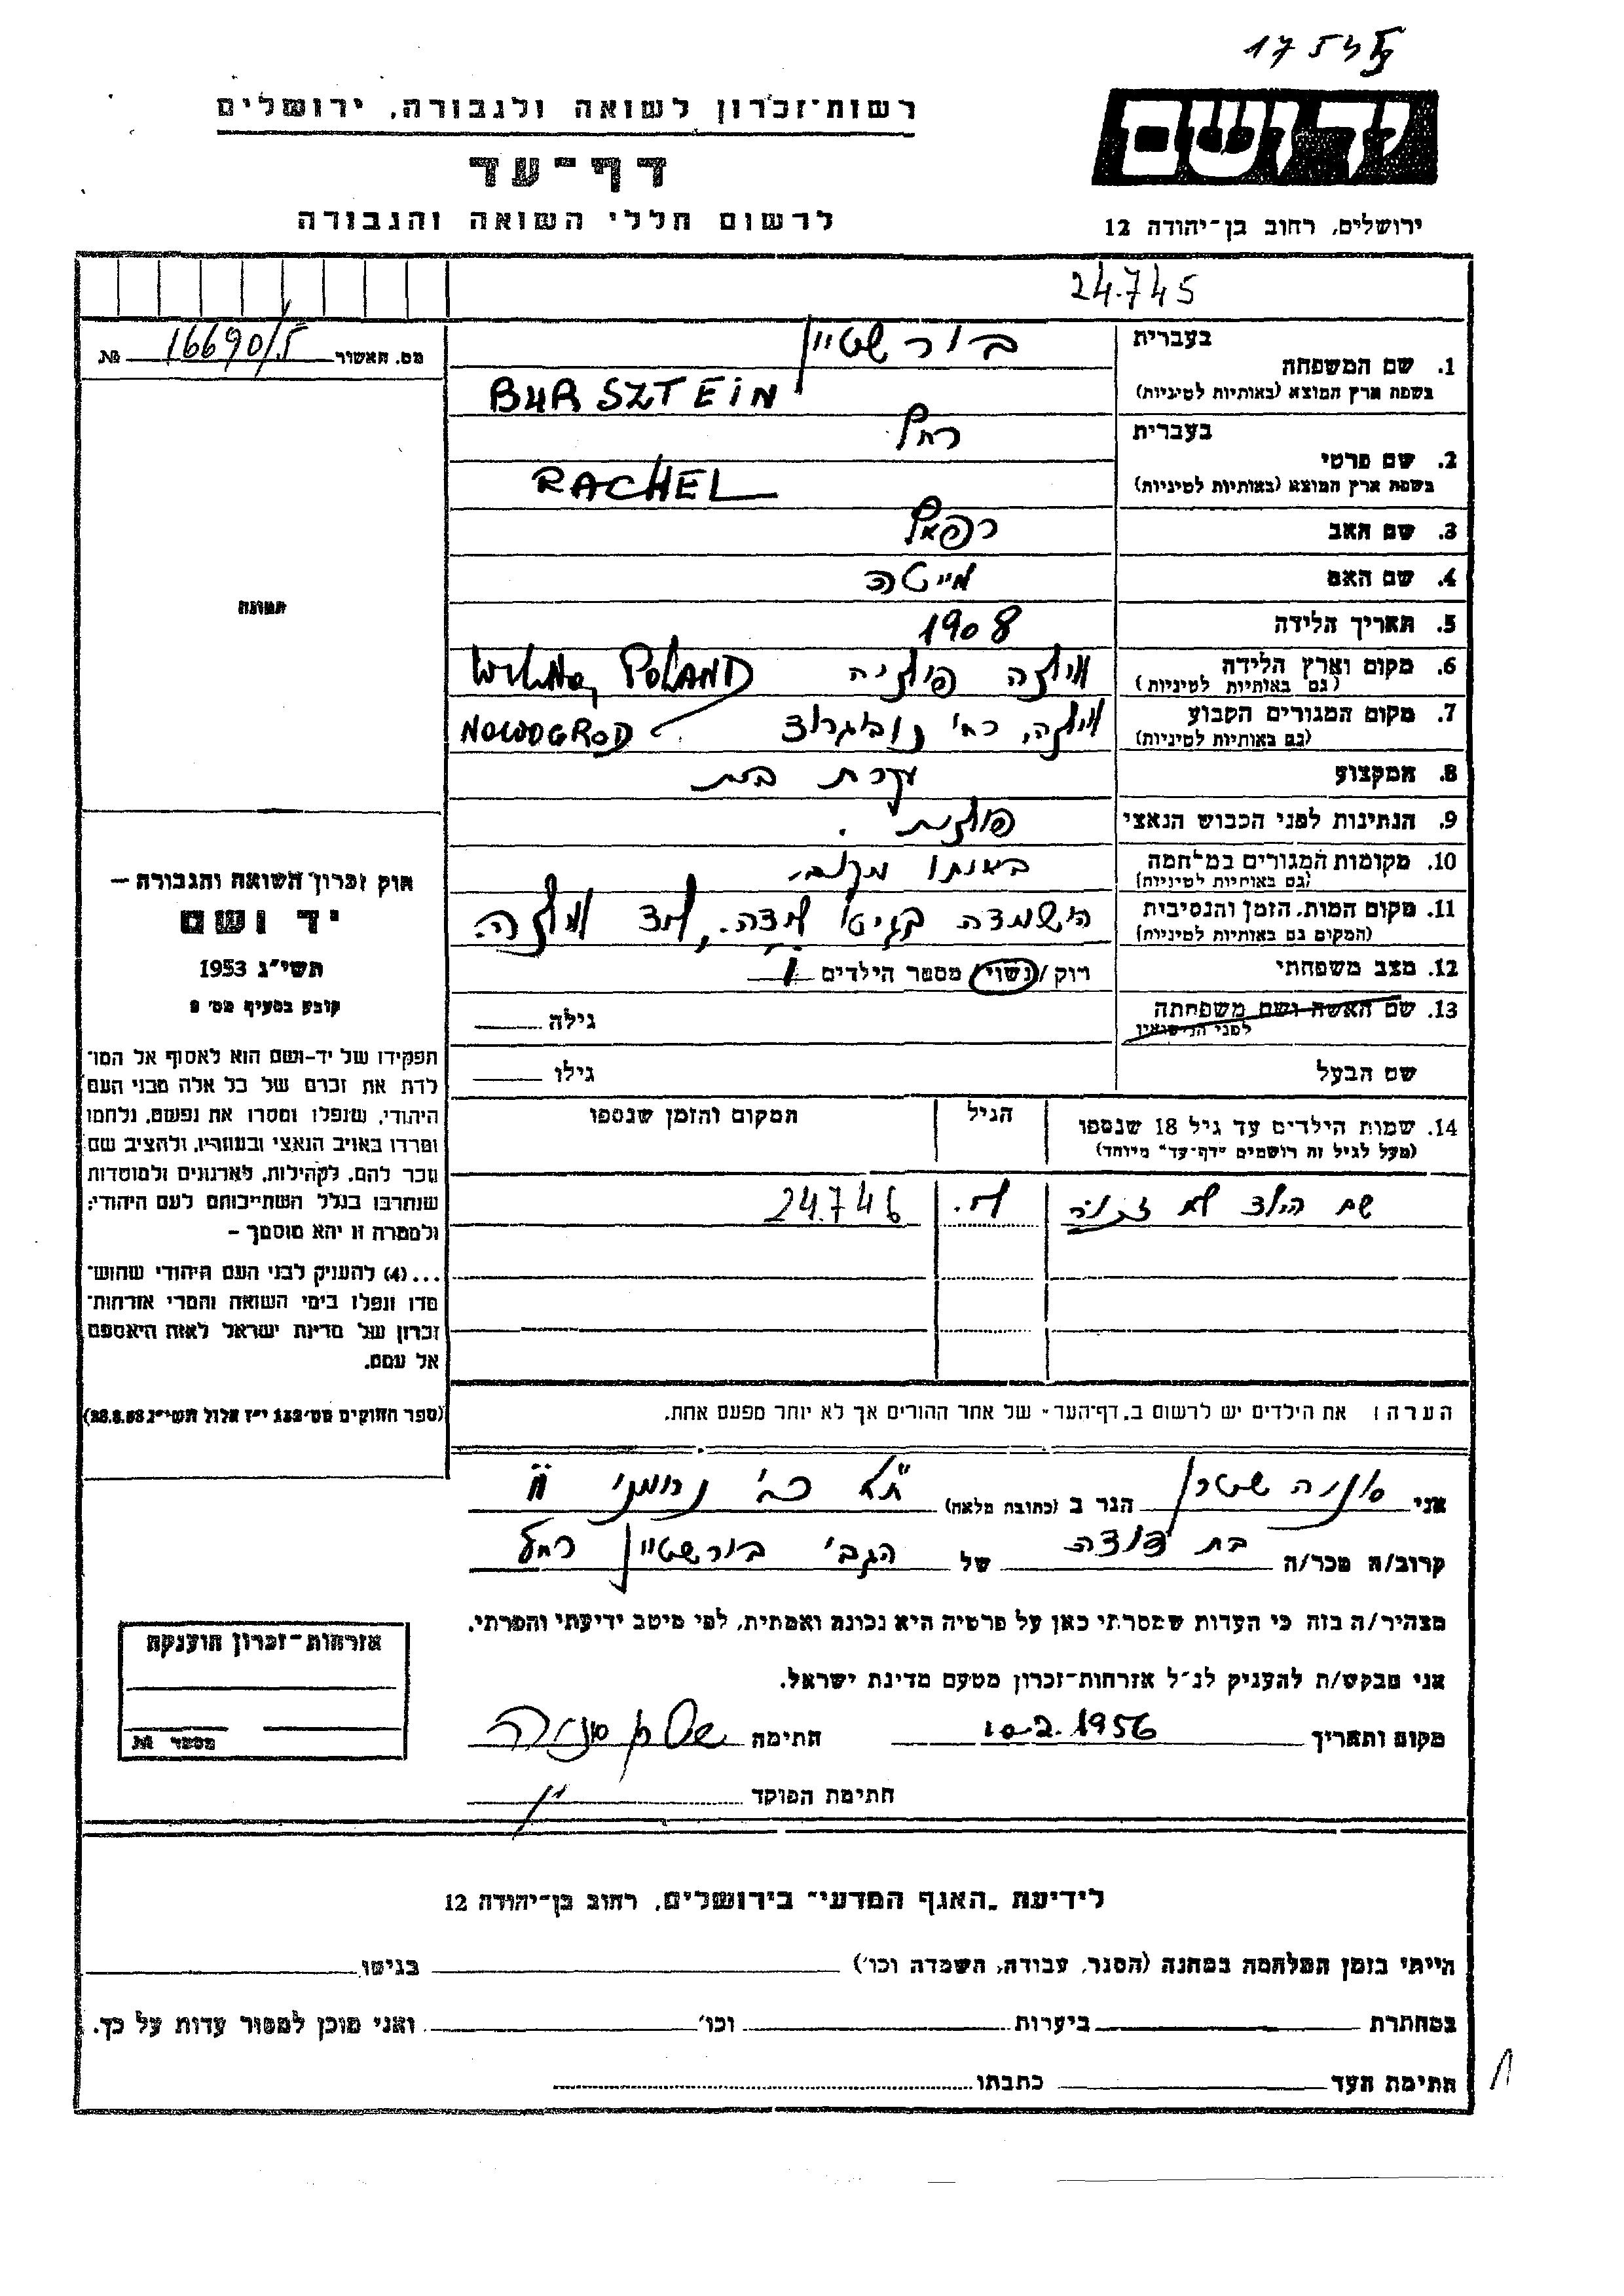 17543
רשות־זכרון לשואה ולגבורה, ירושלים
יד ושם
דף־עד
לרשום חללי השואה והגבורה
ירושלים, רחוב בן־יהודה 12
24.745
מס. האשור № 16690/5
בעברית בורשטיין
1. שם המשפחה
בשפת ארץ המוצא (באותיות לטיניות) BURSZTEIN
בעברית רחל
2. שם פרטי
בשפת ארץ המוצא (באותיות לטיניות) RACHEL
3. שם האב רפאל
4. שם האם מייטה
תמונה
5. תאריך הלידה 1908
6. מקום וארץ הלידה וילנה פולניה Wilna, POLAND
(גם באותיות לטיניות)
7. מקום המגורים הקבוע וילנה, רח' נובוגרוד NOWOGROD
(גם באותיות לטיניות)
8. המקצוע עקרת בית
9. הנתינות לפני הכבוש הנאצי פולנית.
10. מקומות המגורים במלחמה באותו מקום.
(גם באותיות לטיניות)
11. מקום המות, הזמן והנסיבות הושמדה בגיטו וילנה.
(המקום גם באותיות לטיניות)
12. מצב משפחתי רוק / נשוי / מספר הילדים 1
13. שם האשה ושם משפחתה גילה
לפני הנישואין
שם הבעל גילו
14. שמות הילדים עד גיל 18 שנספו הגיל המקום והזמן שנספו
(מעל לגיל זה רושמים "דף־עד" מיוחד)
שם הילד לא 24.746
הערה: את הילדים יש לרשום ב"דף־העד" של אחד ההורים אך לא יותר מפעם אחת.
חוק זכרון השואה והגבורה —
יד ושם
תשי״ג 1953
קובע בסעיף מס׳ 2
תפקידו של יד־ושם הוא לאסוף אל המו־
לדת את זכרם של כל אלה מבני העם
היהודי, שנפלו ומסרו את נפשם, נלחמו
ומרדו באויב הנאצי ובעוזריו, ולהציב שם
וזכר להם, לקהילות, לארגונים ולמוסדות
שנחרבו בגלל השתייכותם לעם היהודי;
ולמטרה זו יהא מוסמך —
...(4) להעניק לבני העם היהודי שהוש־
מדו ונפלו בימי השואה והמרי אזרחות־
זכרון של מדינת ישראל לאות היאספם
אל עמם.
(ספר החוקים מס׳ 132 י״ז אלול תשי״ג 28.8.53)
אני סוניה שטרן הגר ב (כתובת מלאה) ת"א רח' נחמני
קרוב/ה מכר/ה בת דודה של הגב' בורשטיין רחל
מצהיר/ה בזה כי העדות שמסרתי כאן על פרטיה היא נכונה ואמתית, לפי מיטב ידיעתי והכרתי.
אני מבקש/ת להעניק לנ״ל אזרחות־זכרון מטעם מדינת ישראל.
מקום ותאריך 10.2.1956 חתימה שטרן סוניה
חתימת הפוקד
אזרחות־זכרון הוענקה
מספר №
לידיעת "האגף המדעי" בירושלים, רחוב בן־יהודה 12
הייתי בזמן המלחמה במחנה (הסגר, עבודה, השמדה וכו׳) בגיטו
במחתרת ביערות וכו׳ ואני מוכן למסור עדות על כך.
חתימת העד כתבתו